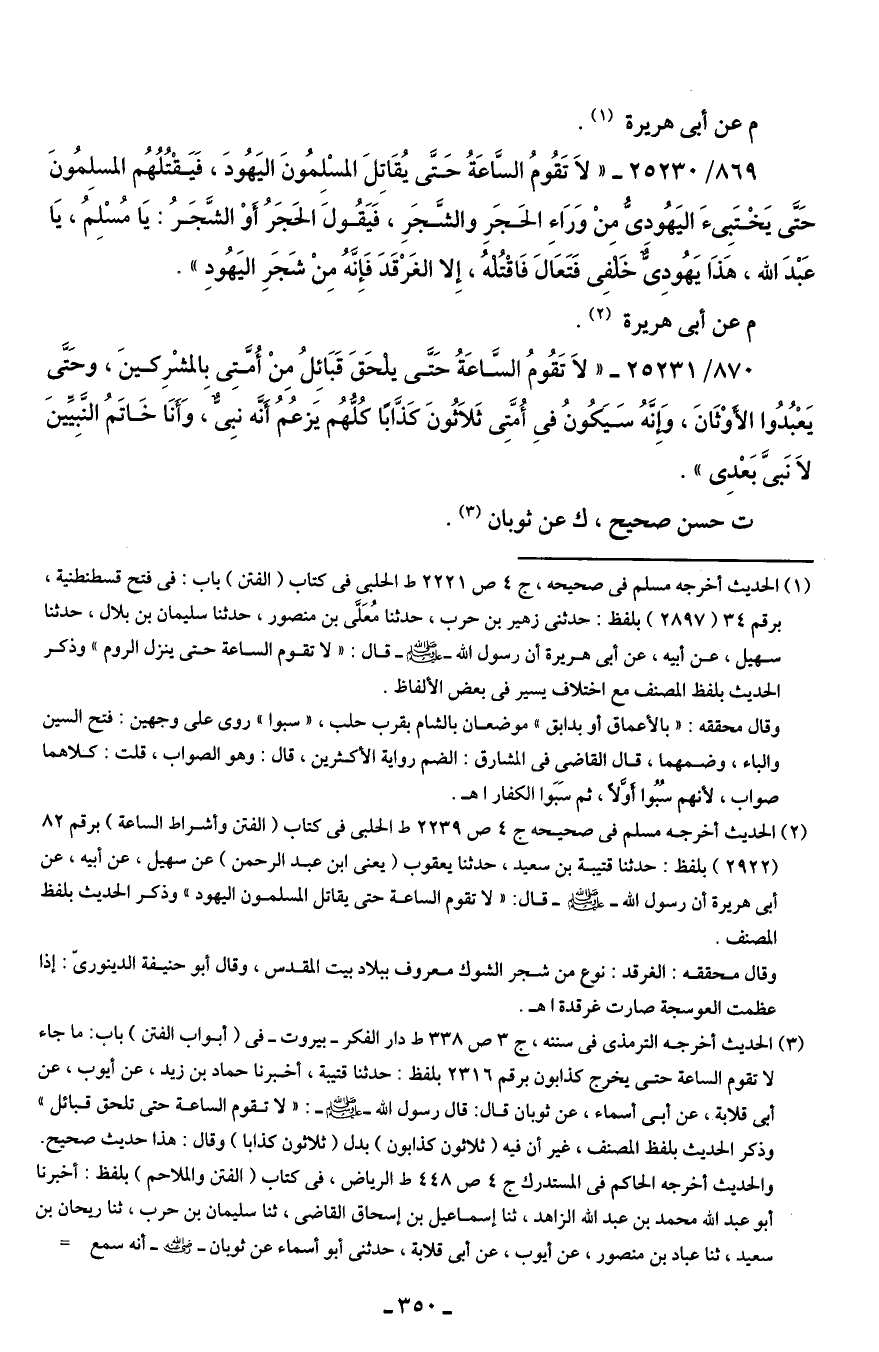 م عن أبى هريرة (١) .
٢٥٢٣٠/٨٦٩ ـ « لاَ تَقُومُ السَّاعَةُ حَتَّى يُقَاتِلَ المسْلِمُونَ اليَهُودَ ، فَيَقْتُلُهُم المسلِمُونَ
حَتَّى يَخْتَبِىءَ اليَهُودِىُّ مِنْ وَرَاءِ الحَجَرِ والشَّجَرِ ، فَيَقُولَ الحَجَرُ أَوْ الشَّجَرُ : يَا مُسْلِمُ ، يَا
عَبْدَ الله ، هَذَا يَهُودِىٌّ خَلْفِى فَتَعَالَ فَاقْتُلْهُ ، إلا الغَرْقَدَ فَإِنَّهُ مِنْ شَجَرِ اليَهُودِ » .
م عن أبى هريرة (٢) .
٢٥٢٣١/٨٧٠ ـ « لاَ تَقُومُ السَّاعَةُ حَتَّى يلْحَقَ قَبَائِلُ مِنْ أُمَّتِى بِالمشْرِكينَ ، وحَتَّى
يَعْبُدُوا الأَوْثَانَ ، وَإِنَّهُ سَيَكُونُ فِى أُمَّتِى ثَلاَثُونَ كَذَّابًا كُلُّهُم يَزعُمُ أَنَّه نبىٌّ ، وَأَنَا خَاتَمُ النَّبِيِّينَ
لاَ نَبِىَّ بَعْدِى » .
ت حسن صحيح ، ك عن ثوبان (٣) .
(١) الحديث أخرجه مسلم فى صحيحه ، ج ٤ ص ٢٢٢١ ط الحلبى فى كتاب ( الفتن ) باب : فى فتح قسطنطنية ،
برقم ٣٤ ( ٢٨٩٧ ) بلفظ : حدثنى زهير بن حرب ، حدثنا مُعَلَّى بن منصور ، حدثنا سليمان بن بلال ، حدثنا
سهيل ، عن أبيه ، عن أبى هريرة أن رسول الله ـ ﷺ ـ قال : « لا تقوم الساعة حتى ينزل الروم » وذكر
الحديث بلفظ المصنف مع اختلاف يسير فى بعض الألفاظ .
وقال محققه : « بالأعماق أو بدابق » موضعان بالشام بقرب حلب ، « سبوا » روى على وجهين : فتح السين
والباء ، وضمهما ، قال القاضى فى المشارق : الضم رواية الأكثرين ، قال : وهو الصواب ، قلت : كلاهما
صواب ، لأنهم سبُوا أوَّلاً ، ثم سَبَوا الكفار اهـ .
(٢) الحديث أخرجه مسلم فى صحيحه ج ٤ ص ٢٢٣٩ ط الحلبى فى كتاب ( الفتن وأشراط الساعة ) برقم ٨٢
(٢٩٢٢ ) بلفظ : حدثنا قتيبة بن سعيد ، حدثنا يعقوب ( يعنى ابن عبد الرحمن ) عن سهيل ، عن أبيه ، عن
أبى هريرة أن رسول الله ـ ﷺ ـ قال: « لا تقوم الساعة حتى يقاتل المسلمون اليهود » وذكر الحديث بلفظ
المصنف .
وقال محققه : الغرقد : نوع من شجر الشوك معروف ببلاد بيت المقدس ، وقال أبو حنيفة الدينورىّ : إذا
عظمت العوسجة صارت غرقدة اهـ .
(٣) الحديث أخرجه الترمذى فى سننه ، ج ٣ ص ٣٣٨ ط دار الفكر ـ بيروت ـ فى ( أبواب الفتن ) باب: ما جاء
لا تقوم الساعة حتى يخرج كذابون برقم ٢٣١٦ بلفظ : حدثنا قتيبة ، أخبرنا حماد بن زيد ، عن أيوب ، عن
أبى قلابة ، عن أبى أسماء ، عن ثوبان قال: قال رسول الله ـ ﷺ ـ : « لا تقوم الساعة حتى تلحق قبائل »
وذكر الحديث بلفظ المصنف ، غير أن فيه ( ثلاثون كذابون ) بدل ( ثلاثون كذابا ) وقال : هذا حديث صحيح.
والحديث أخرجه الحاكم فى المستدرك ج ٤ ص ٤٤٨ ط الرياض ، فى كتاب ( الفتن والملاحم ) بلفظ : أخبرنا
أبو عبد الله محمد بن عبد الله الزاهد ، ثنا إسماعيل بن إسحاق القاضى ، ثنا سليمان بن حرب ، ثنا ريحان بن
سعيد ، ثنا عباد بن منصور ، عن أيوب ، عن أبى قلابة ، حدثنى أبو أسماء عن ثوبان ـ رضي الله عنه ـ أنه سمع =
ـ ٣٥٠ ـ